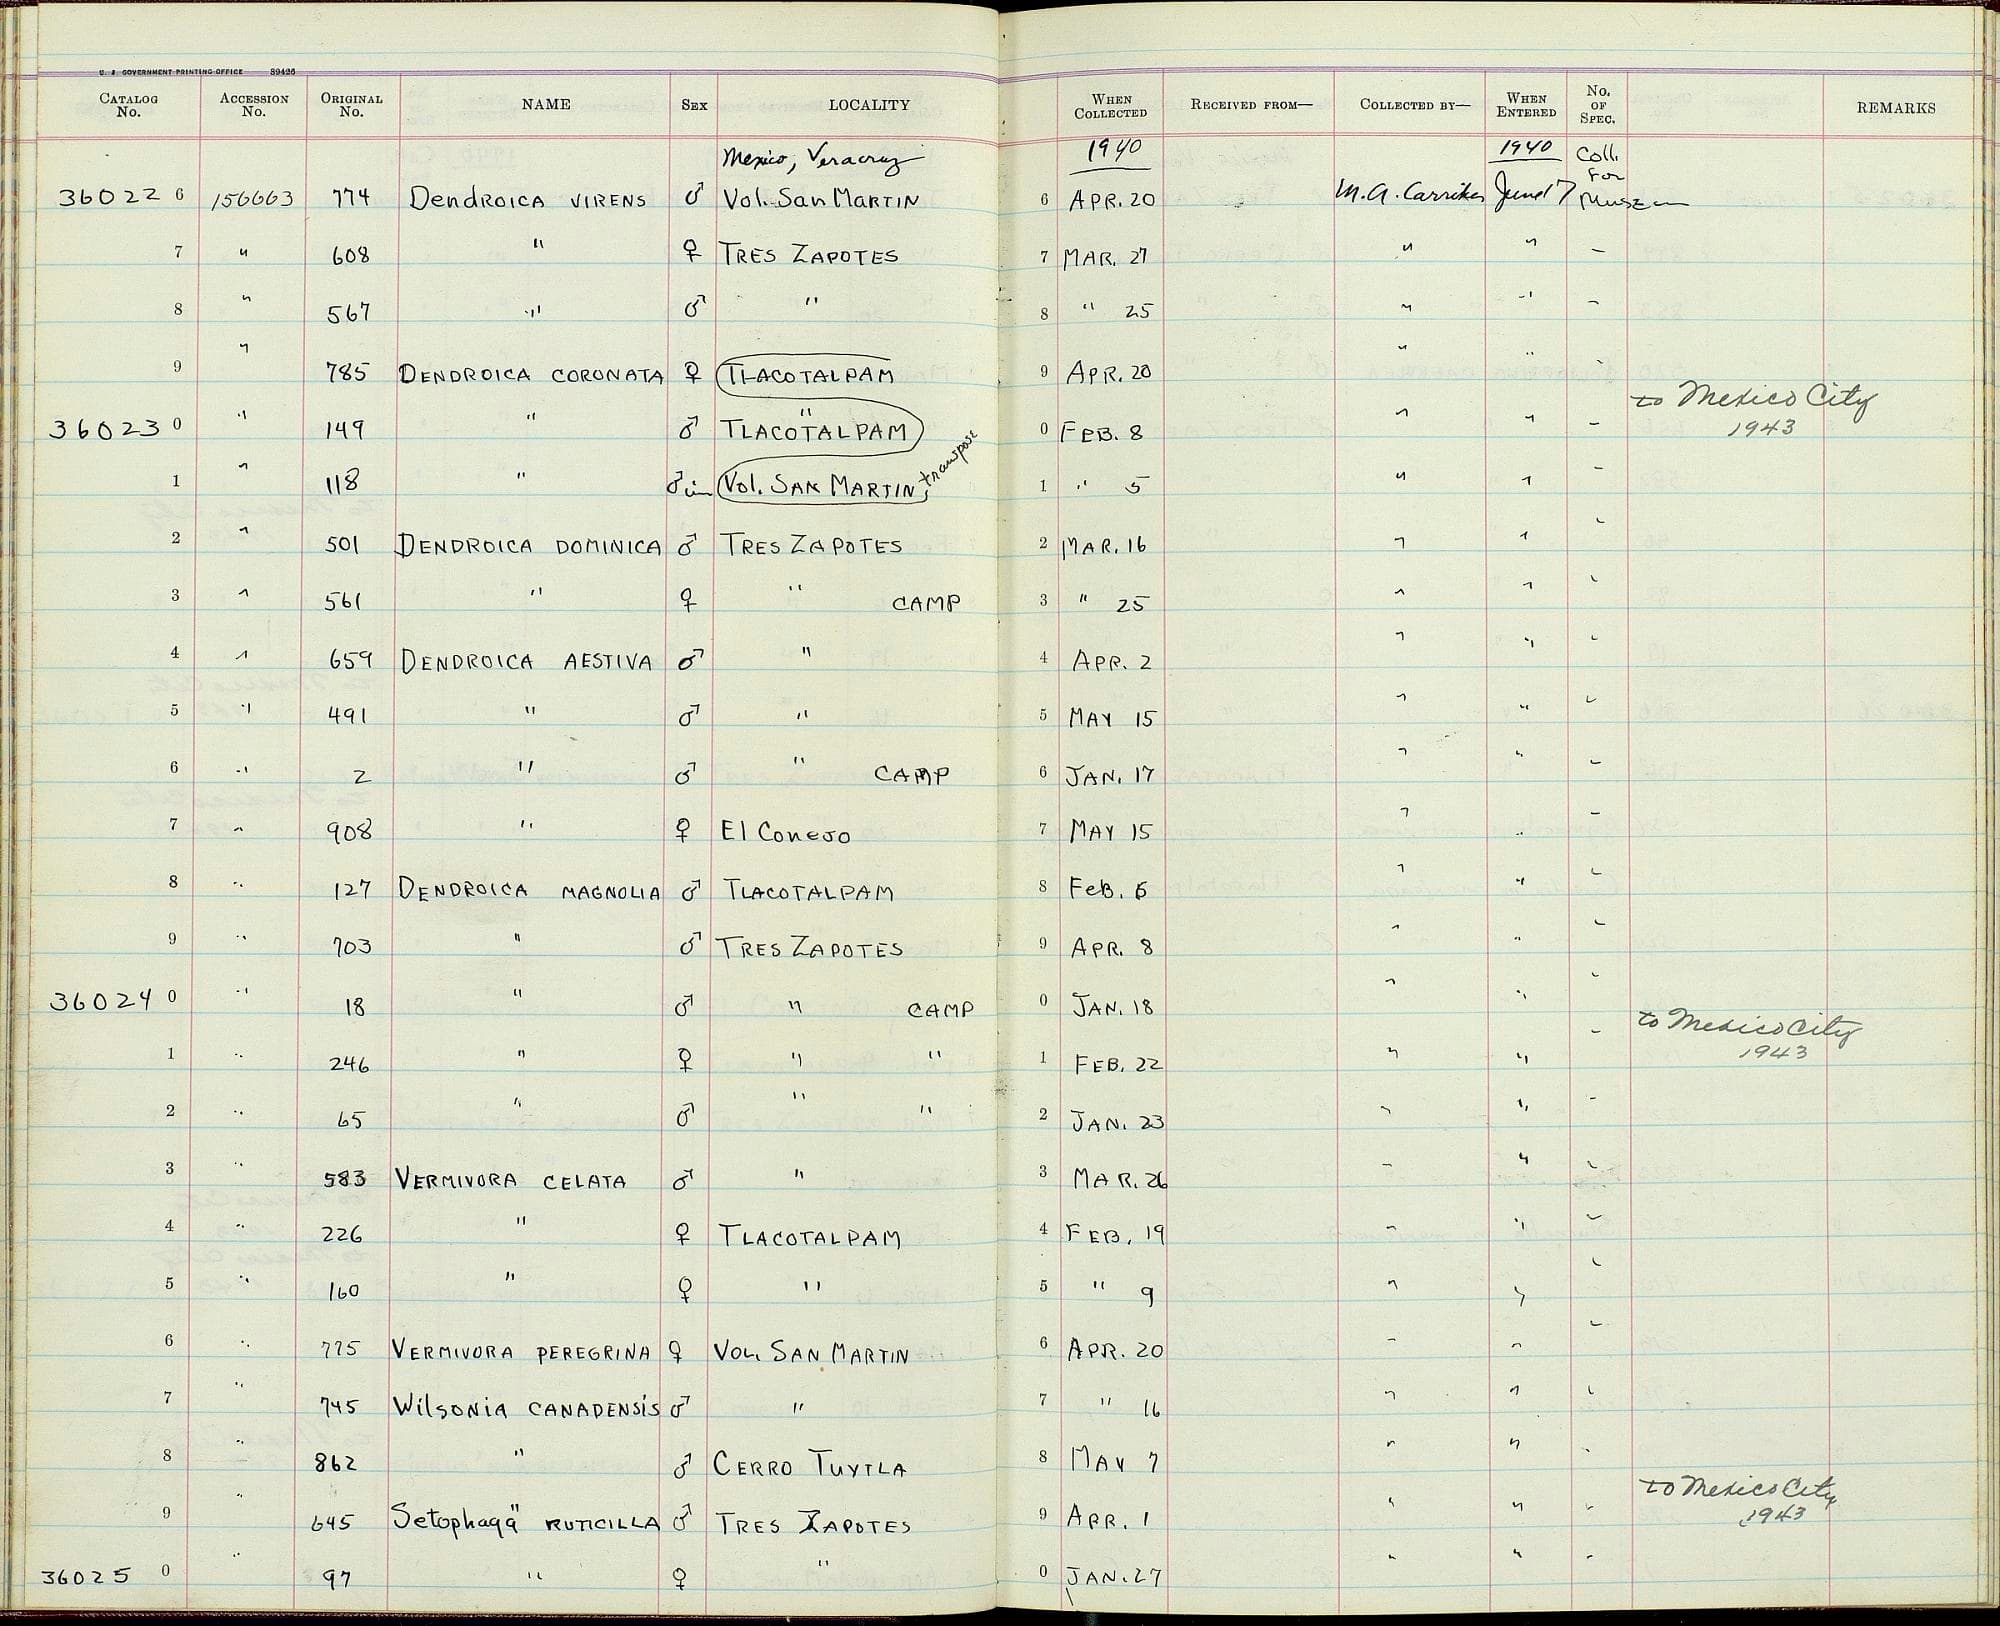 U. S. GOVERNMENT PRINTING OFFICE 39426
CATALOG No. ACCESSION No. ORIGINAL No. NAME SEX LOCALITY WHEN COLLECTED RECEIVED FROM— COLLECTED BY— WHEN ENTERED No. OF SPEC. REMARKS
Mexico, Veracruz 1940 1940 Coll. For
36022 6 156663 774 DENDROICA VIRENS ♂ Vol. San MARTIN 6 APR. 20 M.A. Carriker June 7 Museum
7 " 608 " ♀ TRES ZAPOTES 7 MAR. 27 " " –
8 " 567 " ♂ " 8 " 25 " " –
9 " 785 DENDROICA CORONATA ♀ TLACOTALPAM 9 APR. 20 " "
36023 0 " 149 " ♂ " TLACOTALPAM 0 FEB. 8 " " – to Mexico City 1943
1 " 118 " ♂ im Vol. SAN MARTIN transpose 1 " 5 " " –
2 " 501 DENDROICA DOMINICA ♂ TRES ZAPOTES 2 MAR. 16 " "
3 " 561 " ♀ " CAMP 3 " 25 " "
4 " 659 DENDROICA AESTIVA ♂ " 4 APR. 2 " "
5 " 491 " ♂ " 5 MAY 15 " "
6 " 2 " ♂ " CAMP 6 JAN. 17 " "
7 " 908 " ♀ El Conejo 7 MAY 15 " " –
8 " 127 DENDROICA MAGNOLIA ♂ TLACOTALPAM 8 FEB. 6 " "
9 " 703 " ♂ TRES ZAPOTES 9 APR. 8 " "
36024 0 " 18 " ♂ " CAMP 0 JAN. 18 " "
1 " 246 " ♀ " " 1 FEB. 22 " " – to Mexico City 1943
2 " 65 " ♂ " " 2 JAN. 23 " " –
3 " 583 VERMIVORA CELATA ♂ " 3 MAR. 26 " "
4 " 226 " ♀ TLACOTALPAM 4 FEB. 19 " "
5 " 160 " ♀ " 5 " 9 " "
6 " 775 VERMIVORA PEREGRINA ♀ VOL. SAN MARTIN 6 APR. 20 " "
7 " 745 Wilsonia CANADENSIS ♂ " 7 " 16 " "
8 " 862 " ♂ CERRO TUXTLA 8 MAY 7 " "
9 " 645 Setophaga RUTICILLA ♂ TRES ZAPOTES 9 APR. 1 " " to Mexico City 1943
36025 0 " 97 " ♀ " 0 JAN. 27 " " –